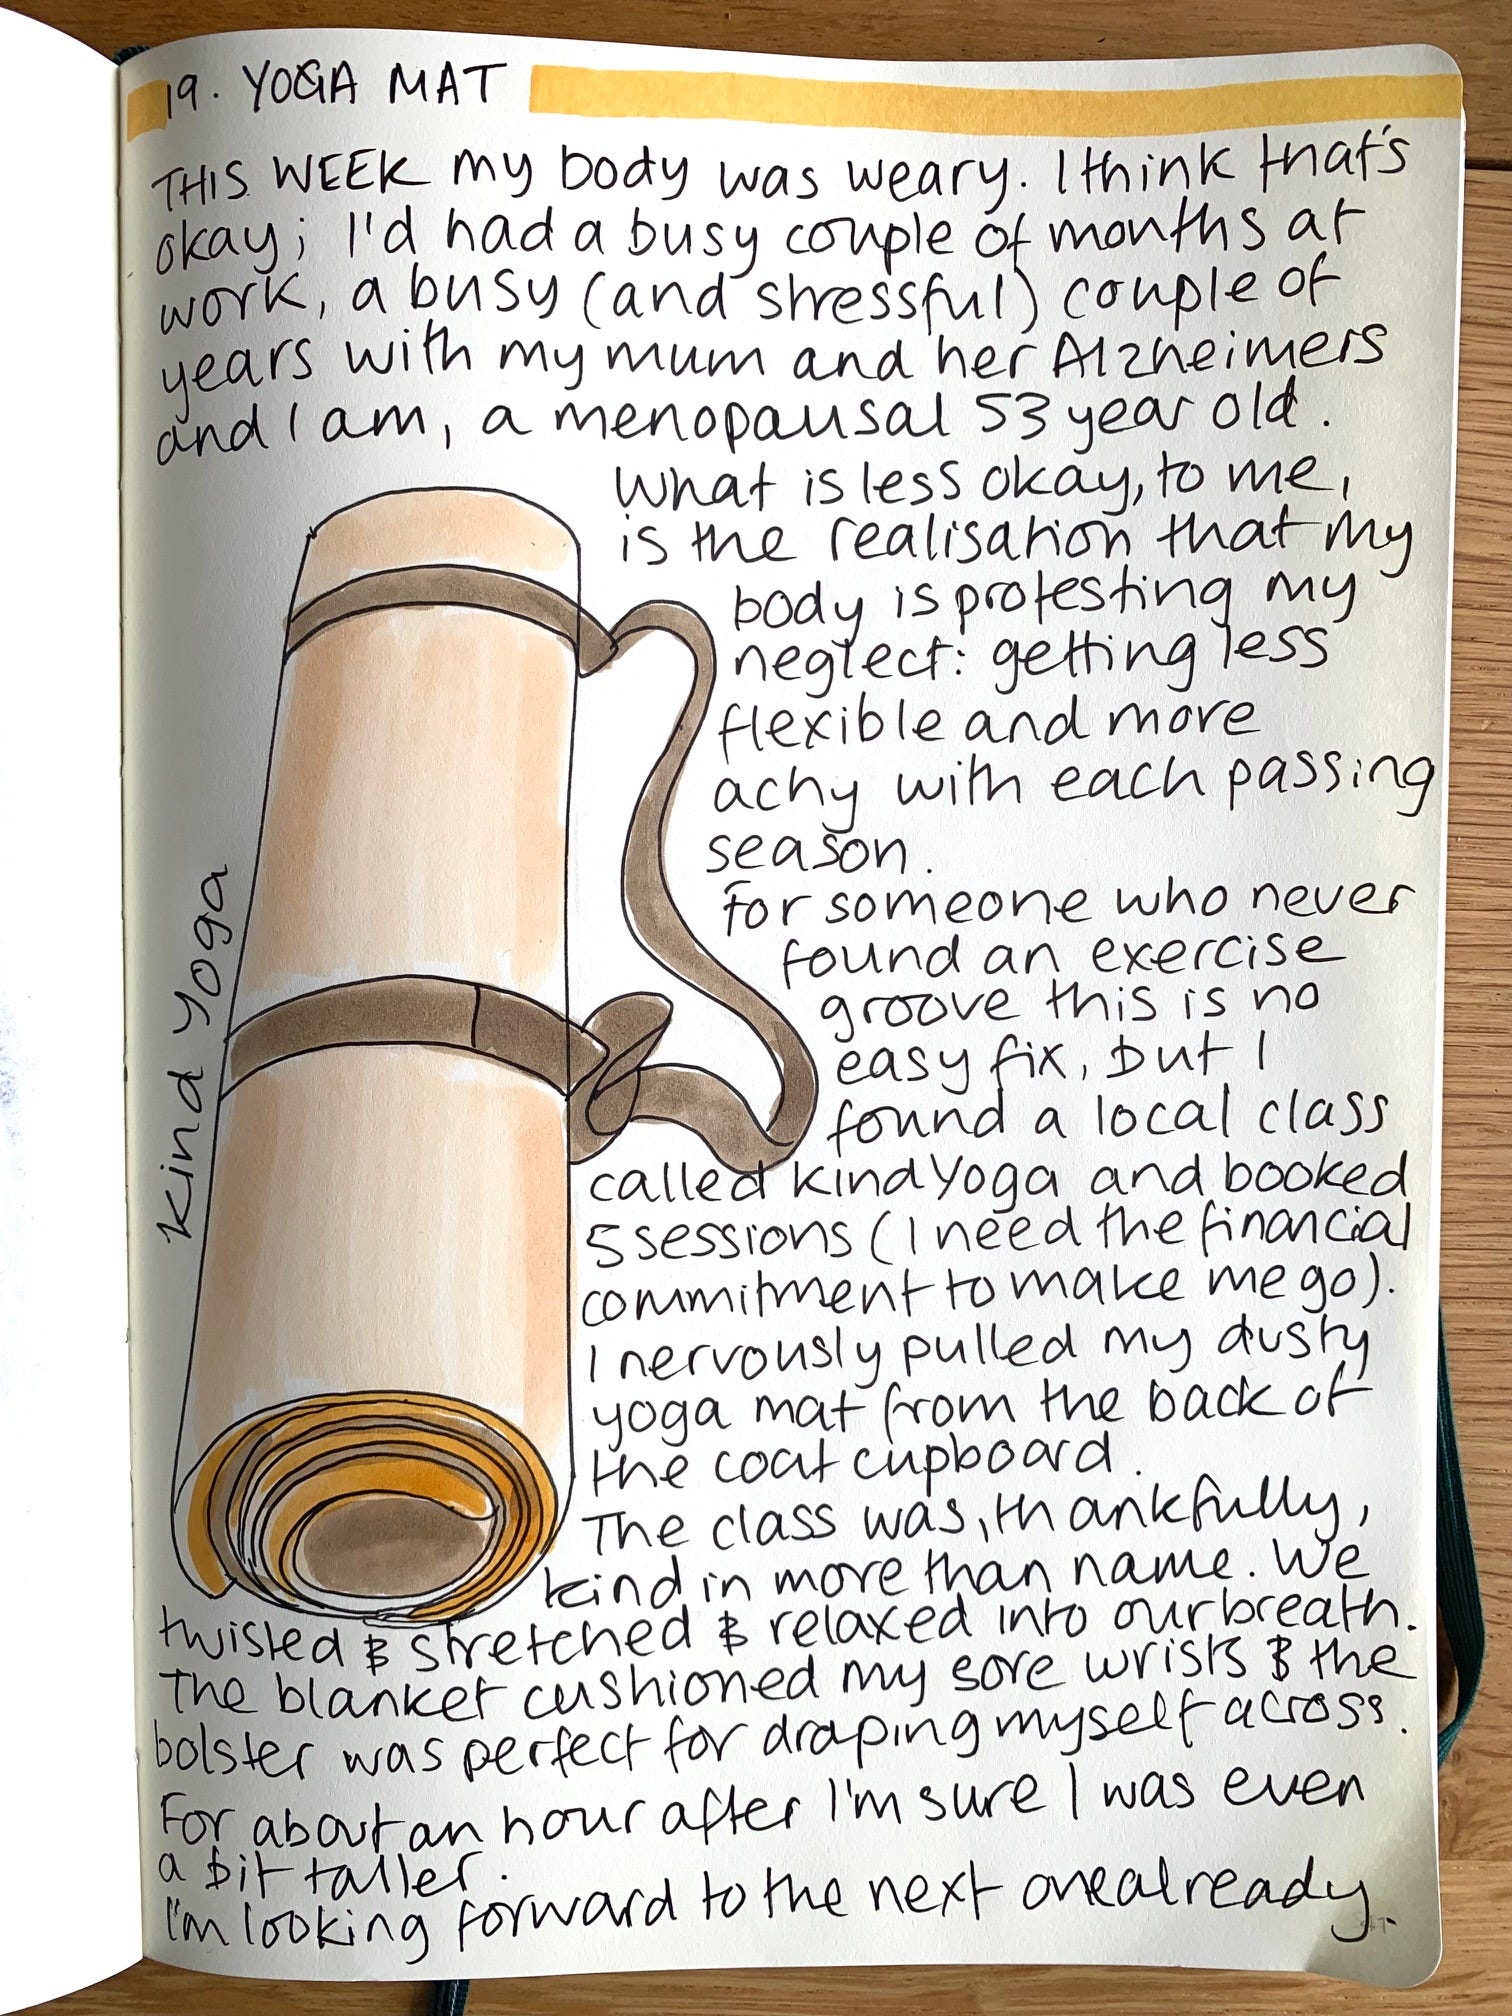 19. YOGA MAT
THIS WEEK my body was weary. I think that's
okay; I'd had a busy couple of months at
work, a busy (and stressful) couple of
years with my mum and her Alzheimers
and I am, a menopausal 53 year old.
What is less okay, to me,
is the realisation that my
body is protesting my
neglect: getting less
flexible and more
achy with each passing
season.
For someone who never
found an exercise
groove this is no
easy fix, but I
found a local class
called Kind Yoga and booked
5 sessions (I need the financial
commitment to make me go).
I nervously pulled my dusty
yoga mat from the back of
the coat cupboard.
The class was, thankfully,
kind in more than name. We
twisted & stretched & relaxed into our breath.
The blanket cushioned my sore wrists & the
bolster was perfect for draping myself across.
For about an hour after I'm sure I was even
a bit taller.
I'm looking forward to the next one already.
Kind Yoga